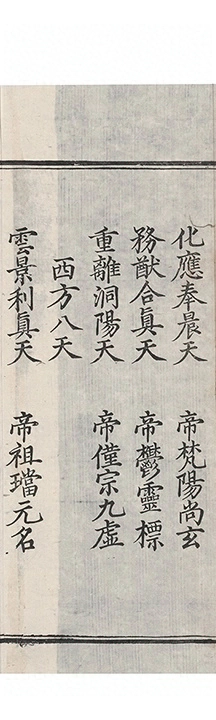 化應奉晨天　帝梵陽尚玄
務猷合真天　帝鬱靈標
重離洞陽天　帝僅宗九虛
西方八天
雲景利真天　帝祖璫元名